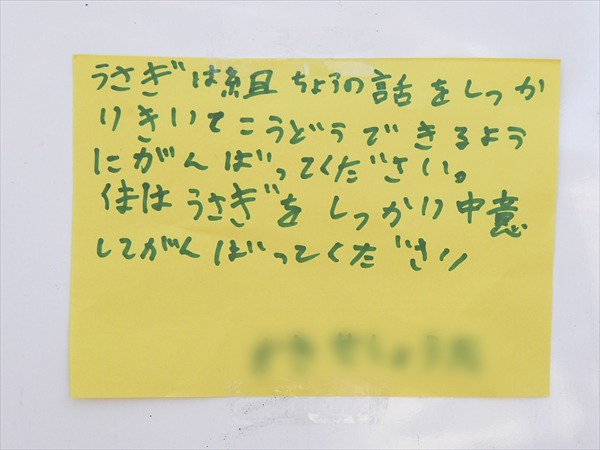 うさぎは組ちょうの話をしっか
りきいてこうどうできるよう
にがんばってください。
はうさぎをしっかり中意
してがんばってくださり